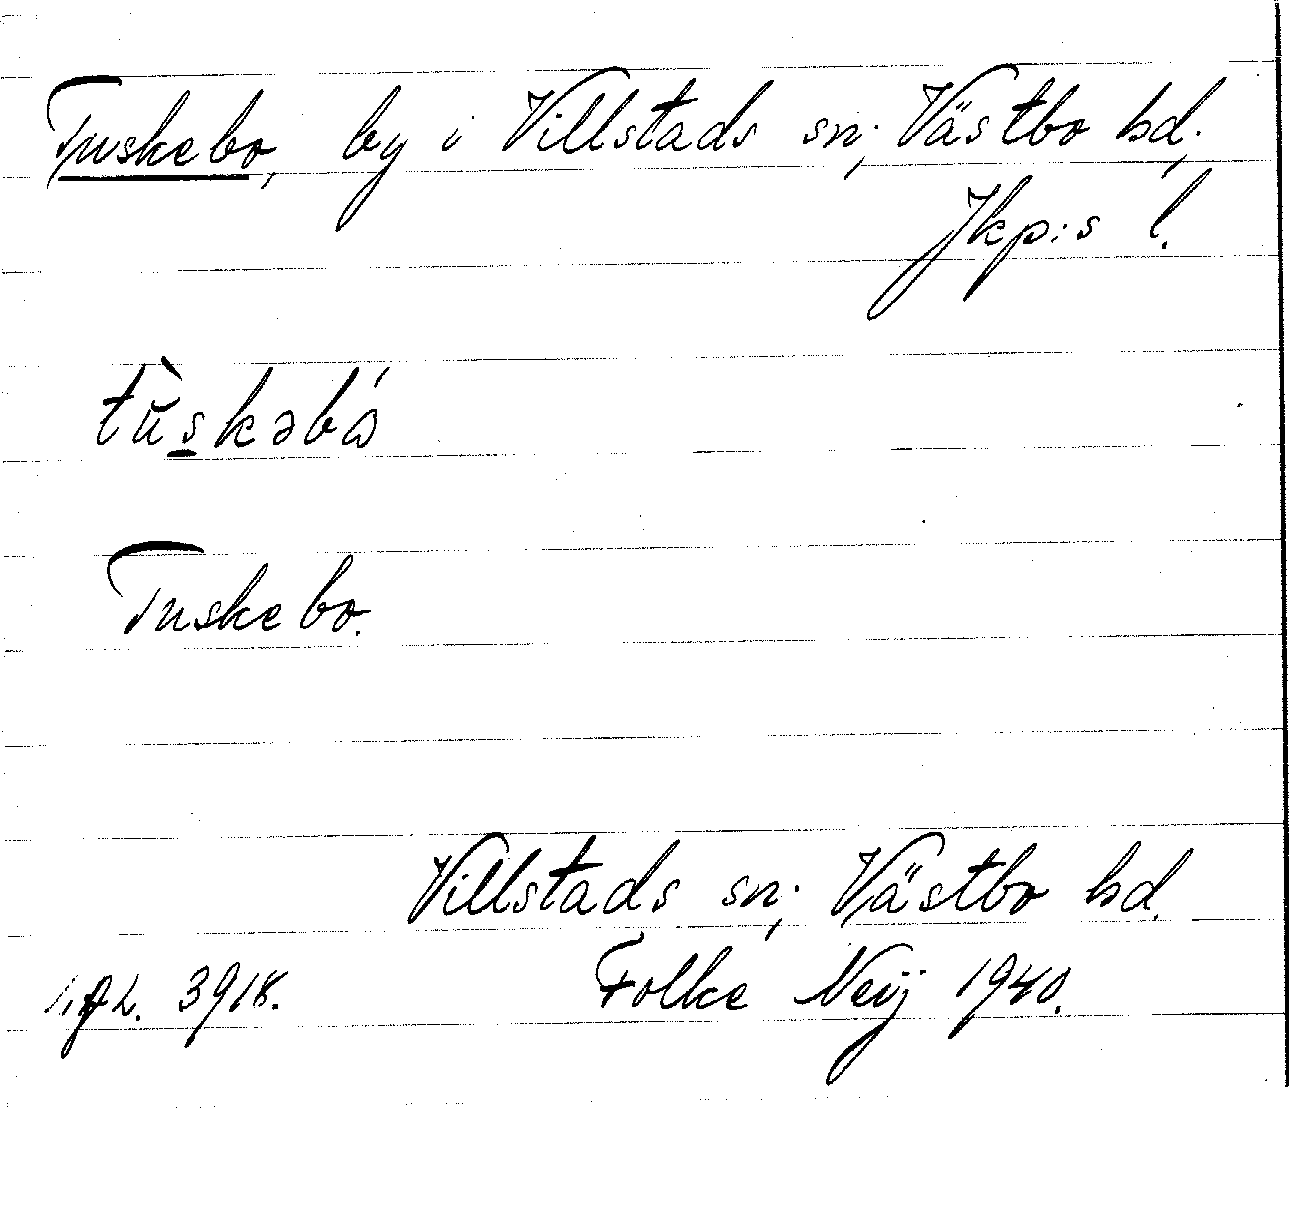 Tuskebo, by i Villstads sn; Västbo hd;
Jkp:s l.
tùskəbó
Tuskebo.
Villstads sn; Västbo hd.
3918. Folke Neij 1940.